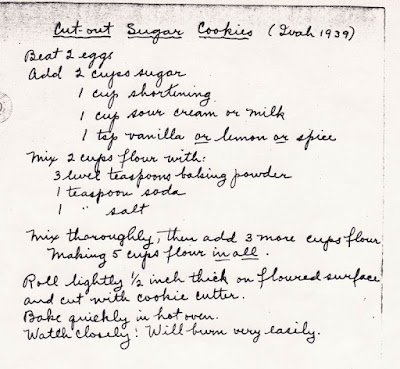 Cut-out Sugar Cookies (Ivah 1939)
Beat 2 eggs
Add 2 cups sugar
1 cup shortening
1 cup sour cream or milk
1 tsp vanilla or lemon or spice
Mix 2 cups flour with:
3 level teaspoons baking powder
1 teaspoon soda
1 " salt
Mix thoroughly, then add 3 more cups flour
Making 5 cups flour in all.
Roll lightly 1/2 inch thick on floured surface
and cut with cookie cutter.
Bake quickly in hot oven.
Watch closely! Will burn very easily.